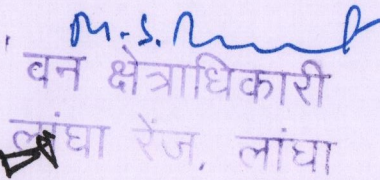 वन क्षेत्राधिकारी
लांघा रेंज, लांघा